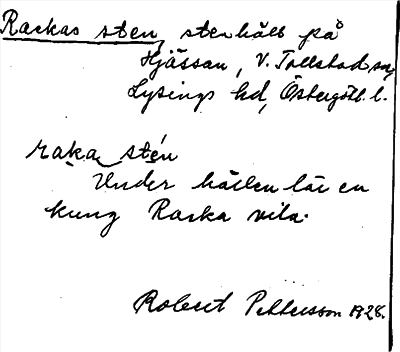 Rackas sten, stenhäll på
Hjässan, V. Tollstad sn,
Lysings hd, Östergötl. l.
raka stén
Under hällen lär en
kung Racka vila.
Robert Pettersson 1928.